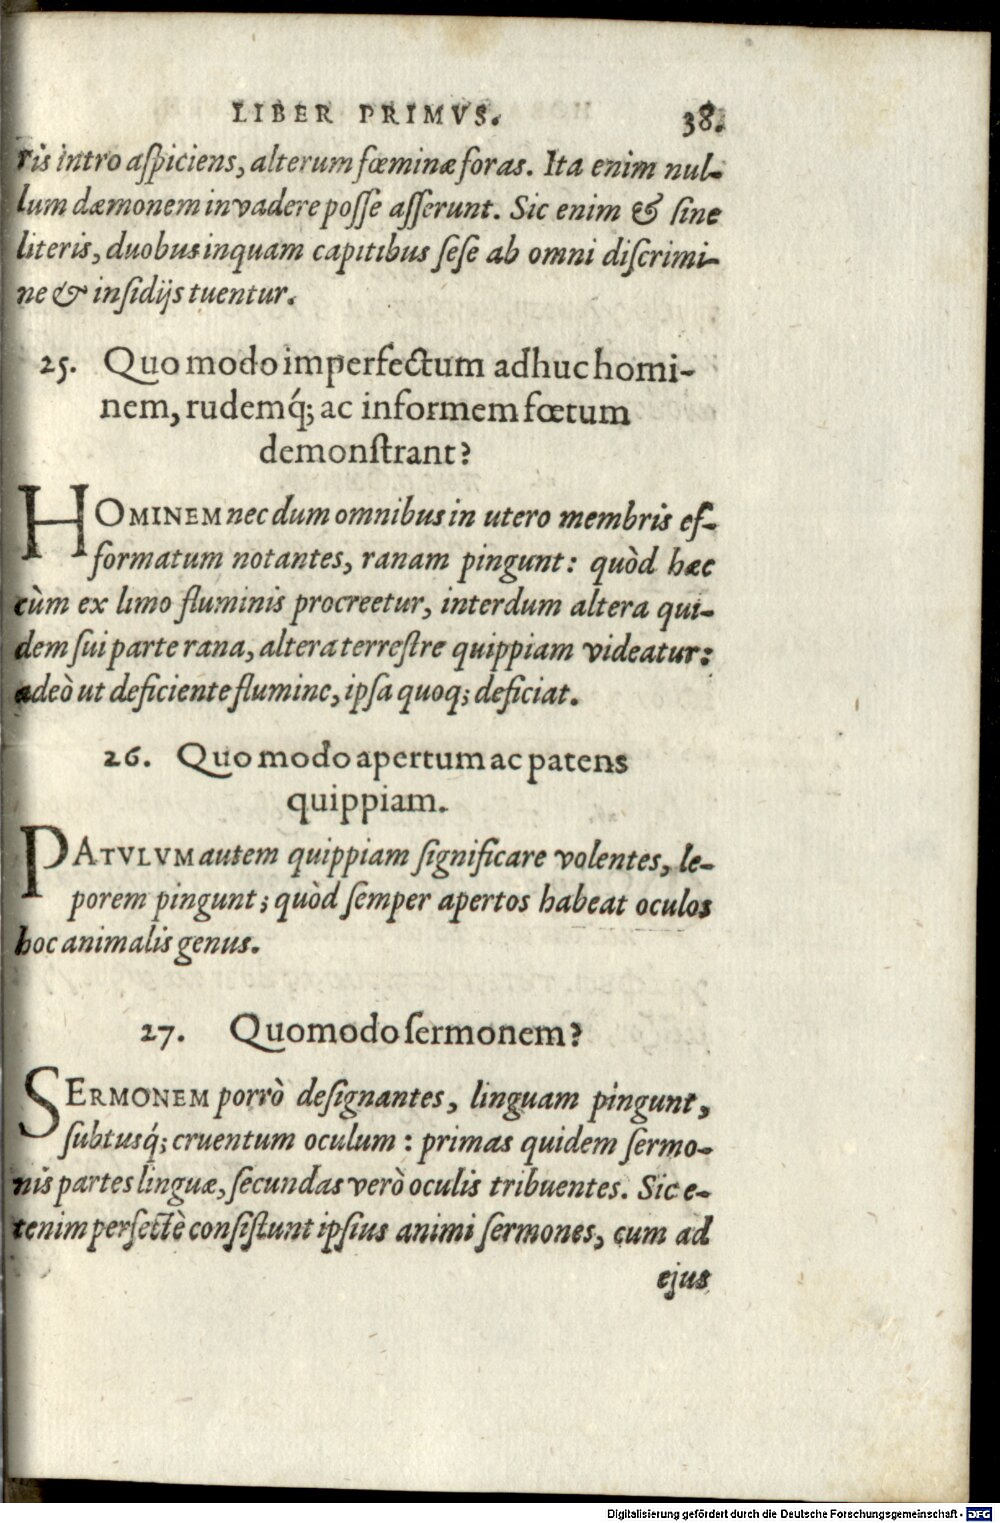 LIBER PRIMVS. 38.
ris intro aſpiciens, alterum fœminæ foras. Ita enim nul-
lum dæmonem invadere poſſe aſſerunt. Sic enim & ſine
literis, duobus inquam capitibus ſeſe ab omni diſcrimi-
ne & inſidijs tuentur.
25. Quomodo imperfectum adhuc homi-
nem, rudemq́; ac informem fœtum
demonſtrant?
HOMINEM nec dum omnibus in utero membris ef-
formatum notantes, ranam pingunt: quòd hæc
cùm ex limo fluminis procreetur, interdum altera qui-
dem ſui parte rana, altera terreſtre quippiam videatur:
adeò ut deficiente flumine, ipſa quoq; deficiat.
26. Quomodo apertum ac patens
quippiam.
PATVLVM autem quippiam ſignificare volentes, le-
porem pingunt; quòd ſemper apertos habeat oculos
hoc animalis genus.
27. Quomodo ſermonem?
SERMONEM porrò deſignantes, linguam pingunt,
ſubtusq́; cruentum oculum: primas quidem ſermo-
nis partes linguæ, ſecundas verò oculis tribuentes. Sic e-
tenim perfectè conſiſtunt ipſius animi ſermones, cum ad
ejus
Digitalisierung gefördert durch die Deutsche Forschungsgemeinschaft - DFG